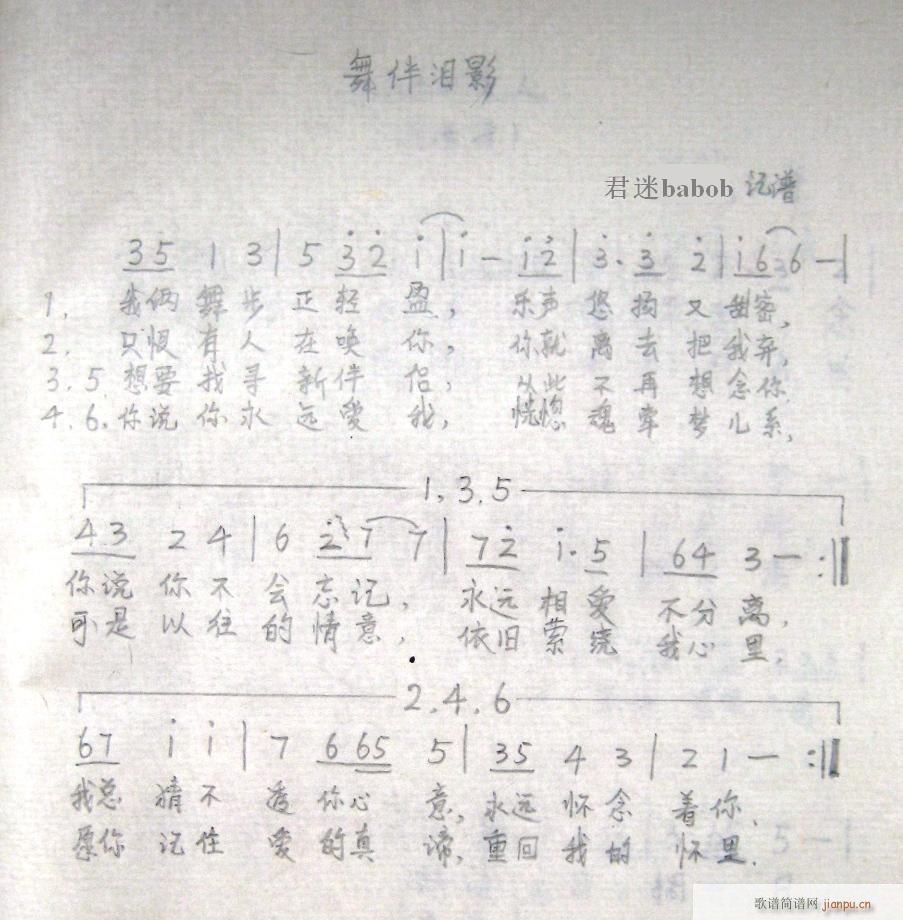 舞伴泪影
君迷babob 记谱
35 1 3 | 5 32 i | i — i2 | 3. 3 2 | i6 6 — |
1. 我俩舞步正轻盈,乐声悠扬又甜密,
2. 只恨有人在唤你,你就离去把我弃,
3.5 想要找寻新伴侣,从此不再想念你.
4.6. 你说你永远爱我,恍惚魂牵梦儿系,
1.3.5
43 2 4 | 6 27 7 | 72 i. 5 | 64 3 — :||
你说你不会忘记,永远相爱不分离,
可是以往的情意,依旧萦绕我心里.
2.4.6
67 i i | 7 665 5 | 35 4 3 | 2 1 — :||
我总猜不透你心意,永远怀念着你.
愿你记住爱的真谛,重回我的怀里.
歌谱简谱网 jianpu.cn